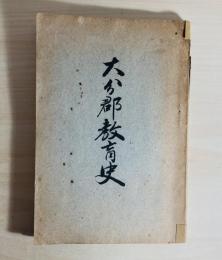 大分郡教育史